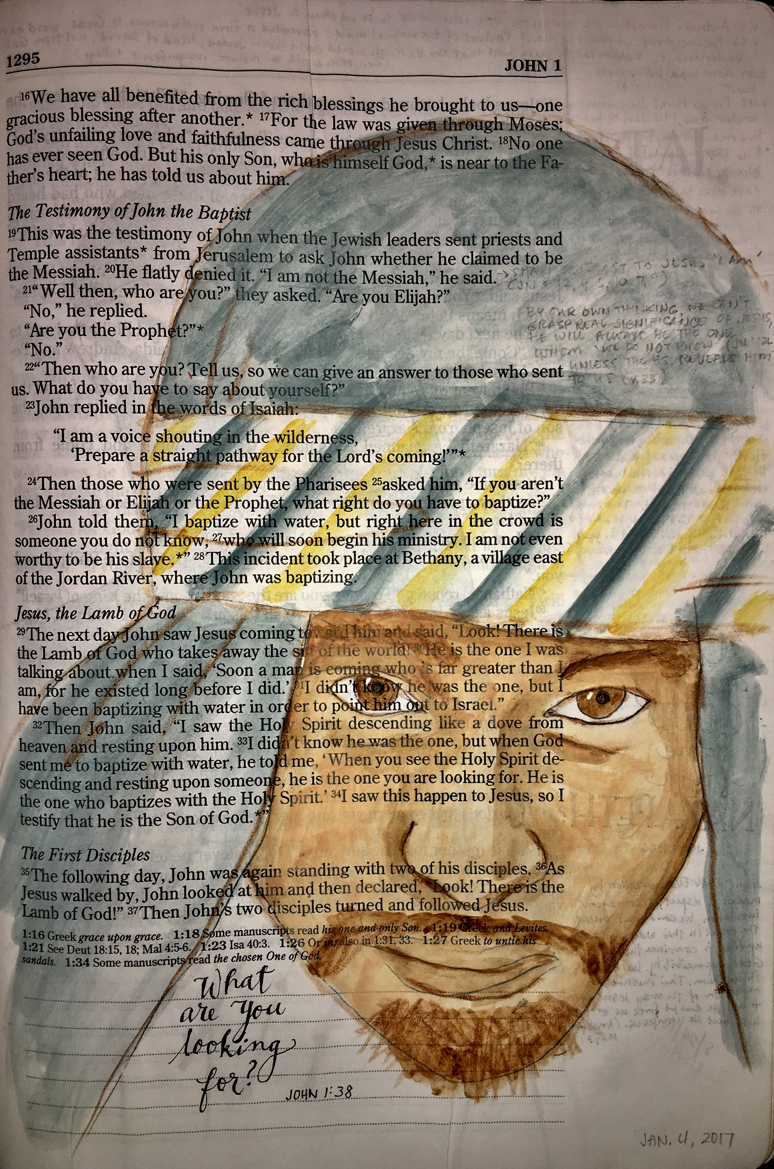 1295
JOHN 1
16We have all benefited from the rich blessings he brought to us—one
gracious blessing after another.* 17For the law was given through Moses;
God's unfailing love and faithfulness came through Jesus Christ. 18No one
has ever seen God. But his only Son, who is himself God,* is near to the Fa-
ther's heart; he has told us about him.
The Testimony of John the Baptist
19This was the testimony of John when the Jewish leaders sent priests and
Temple assistants* from Jerusalem to ask John whether he claimed to be
the Messiah. 20He flatly denied it. “I am not the Messiah,” he said.
21“Well then, who are you?” they asked. “Are you Elijah?”
“No,” he replied.
“Are you the Prophet?”*
“No.”
22“Then who are you? Tell us, so we can give an answer to those who sent
us. What do you have to say about yourself?”
23John replied in the words of Isaiah:
“I am a voice shouting in the wilderness,
‘Prepare a straight pathway for the Lord's coming!’”*
24Then those who were sent by the Pharisees 25asked him, “If you aren't
the Messiah or Elijah or the Prophet, what right do you have to baptize?”
26John told them, “I baptize with water, but right here in the crowd is
someone you do not know, 27who will soon begin his ministry. I am not even
worthy to be his slave.*” 28This incident took place at Bethany, a village east
of the Jordan River, where John was baptizing.
TO JESUS' 'I AM'
BY OUR OWN THINKING, WE CAN'T
GRASP REAL SIGNIFICANCE OF JESUS,
HE WILL ALWAYS BE THE ONE
WHOM WE DO NOT KNOW
UNLESS REVEALS HIM
TO US
Jesus, the Lamb of God
29The next day John saw Jesus coming toward him and said, “Look! There is
the Lamb of God who takes away the sin of the world! 30He is the one I was
talking about when I said, ‘Soon a man is coming who is far greater than I
am, for he existed long before I did.’ 31I didn't know he was the one, but I
have been baptizing with water in order to point him out to Israel.”
32Then John said, “I saw the Holy Spirit descending like a dove from
heaven and resting upon him. 33I didn't know he was the one, but when God
sent me to baptize with water, he told me, ‘When you see the Holy Spirit de-
scending and resting upon someone, he is the one you are looking for. He is
the one who baptizes with the Holy Spirit.’ 34I saw this happen to Jesus, so I
testify that he is the Son of God.*”
The First Disciples
35The following day, John was again standing with two of his disciples. 36As
Jesus walked by, John looked at him and then declared, “Look! There is the
Lamb of God!” 37Then John's two disciples turned and followed Jesus.
1:16 Greek grace upon grace. 1:18 Some manuscripts read his one and only Son. 1:19 Greek and Levites.
1:21 See Deut 18:15, 18; Mal 4:5-6. 1:23 Isa 40:3. 1:26 Or in; also in 1:31, 33. 1:27 Greek to untie his
sandals. 1:34 Some manuscripts read the chosen One of God.
What
are you
looking
for?
JOHN 1:38
JAN. 4, 2017